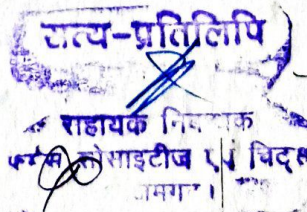 सत्य-प्रतिलिपि
सहायक निबन्धक
फर्म्स सोसाइटीज एवं चिट्स